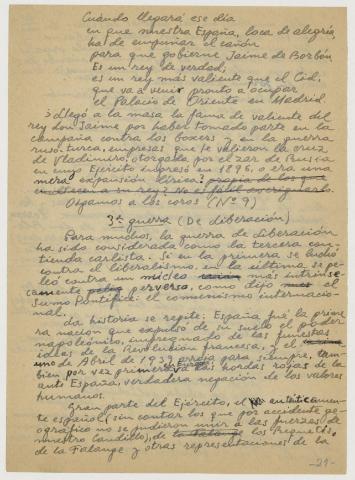 Cuándo llegará ese día
en que nuestra España, loca de alegría,
ha de empuñar el cañón
para que gobierne Jaime de Borbón.
Es un rey de verdad,
es un rey más valiente que el Cid,
que va a venir pronto a ocupar
el Palacio de Oriente en Madrid.
¿Llegó a la masa la fama de valiente del
rey don Jaime por haber tomado parte en la
campaña contra los boxers y en la guerra
ruso-turca, empresas que le valieron la cruz
de Vladimiro, otorgada por el zar de Rusia
en cuyo Ejército ingresó en 1896, o era una
mera expansión lírica? propia de los que
a su rey? No es fácil averiguarlo.
Oigamos a los coros (Nº 9)
3ª guerra (De liberación)
Para muchos, la guerra de liberación
ha sido considerada como la tercera con-
tienda carlista. Si en la primera se luchó
contra el liberalismo, en la última se pe-
leó contra un más intrinse-
camente perverso, como dijo el
Sumo Pontífice: el comunismo internacio-
nal.
La historia se repite: España fué la prime-
ra nación que expulsó de su suelo el poder
napoleónico, impregnado de las funestas
ideas de la Revolución francesa, y el
uno de Abril de 1939 arroja para siempre, tam-
bien por vez primera en Europa a las hordas rojas de la
ante España, verdadera negación de los valores
humanos.
Gran parte del Ejército, el auténticamen-
te español (sin contar los que por accidente geo-
gráfico no se pudieron unir a las fuerzas de
nuestro Caudillo), de la Falange los Requetés,
de la Falange y otras representaciones de la
-21-